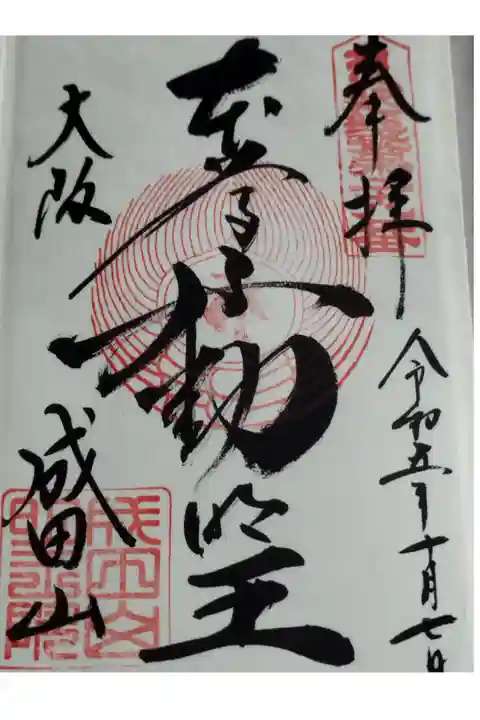 奉拝
令和五年十月七日
本尊不動明王
大阪
成田山